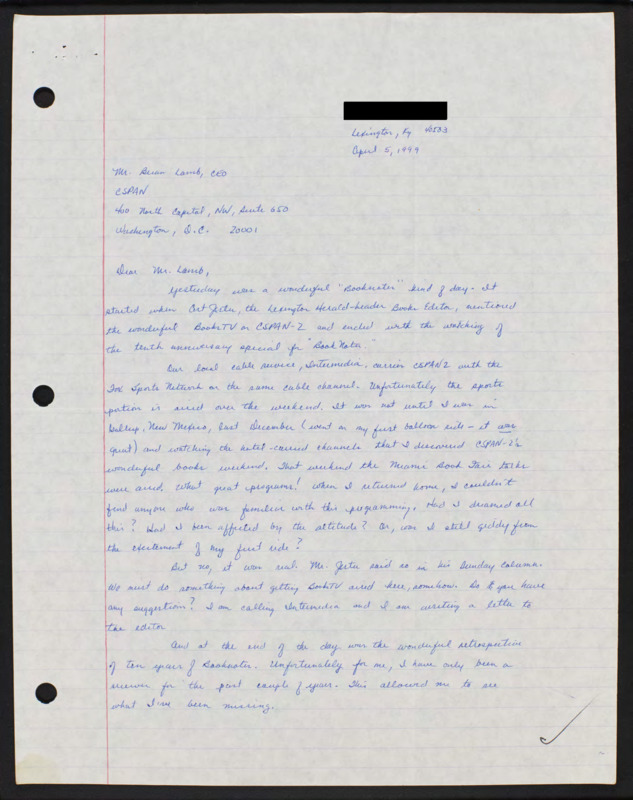 Lexington, Ky 40503
April 5, 1999
Mr. Brian Lamb, CEO
CSPAN
400 North Capital, NW, Suite 650
Washington, D.C. 20001
Dear Mr. Lamb,
Yesterday was a wonderful "Booknotes" kind of day. It
started when Art Jeter, the Lexington Herald-Leader Books Editor, mentioned
the wonderful BookTV on CSPAN-2 and ended with the watching of
the tenth anniversary special for "Book Notes."
Our local cable service, Intermedia, carries CSPAN2 with the
Fox Sports Network on the same cable channel. Unfortunately the sports
portion is aired over the weekend. It was not until I was in
Gallup, New Mexico, last December (went on my first balloon ride - it was
great) and watching the hotel-carried channels that I discovered CSPAN-2's
wonderful books weekend. That weekend the Miami Book Fair talks
were aired. What great programs! When I returned home, I couldn't
find anyone who was familiar with this programming. Had I dreamed all
this? Had I been affected by the altitude? Or, was I still giddy from
the excitement of my first ride?
But no, it was real. Mr. Jeter said so in his Sunday column.
We must do something about getting BookTV aired here, somehow. Do you have
any suggestions? I am calling Intermedia and I am writing a letter to
the editor
And at the end of the day was the wonderful retrospective
of ten years of Booknotes. Unfortunately for me, I have only been a
viewer for the past couple of years. This allowed me to see
what I've been missing.